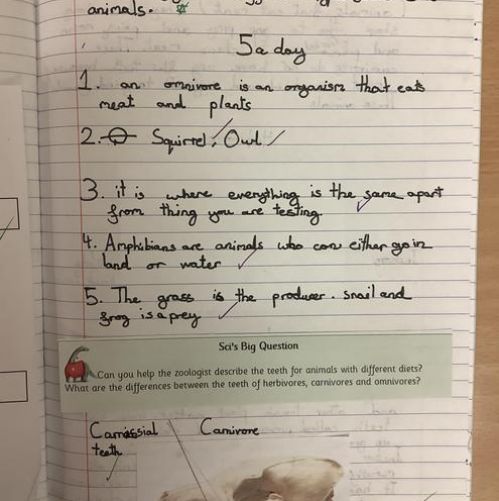 animals.
5 a day
1. an omnivore is an organism that eats
meat and plants
2. Squirrel, Owl
3. it is where everything is the same apart
from thing you are testing.
4. Amphibians are animals who can either go in
land or water
5. The grass is the producer. snail and
frog is a prey
Sci's Big Question
Can you help the zoologist describe the teeth for animals with different diets?
What are the differences between the teeth of herbivores, carnivores and omnivores?
Carnassial Carnivore
teeth